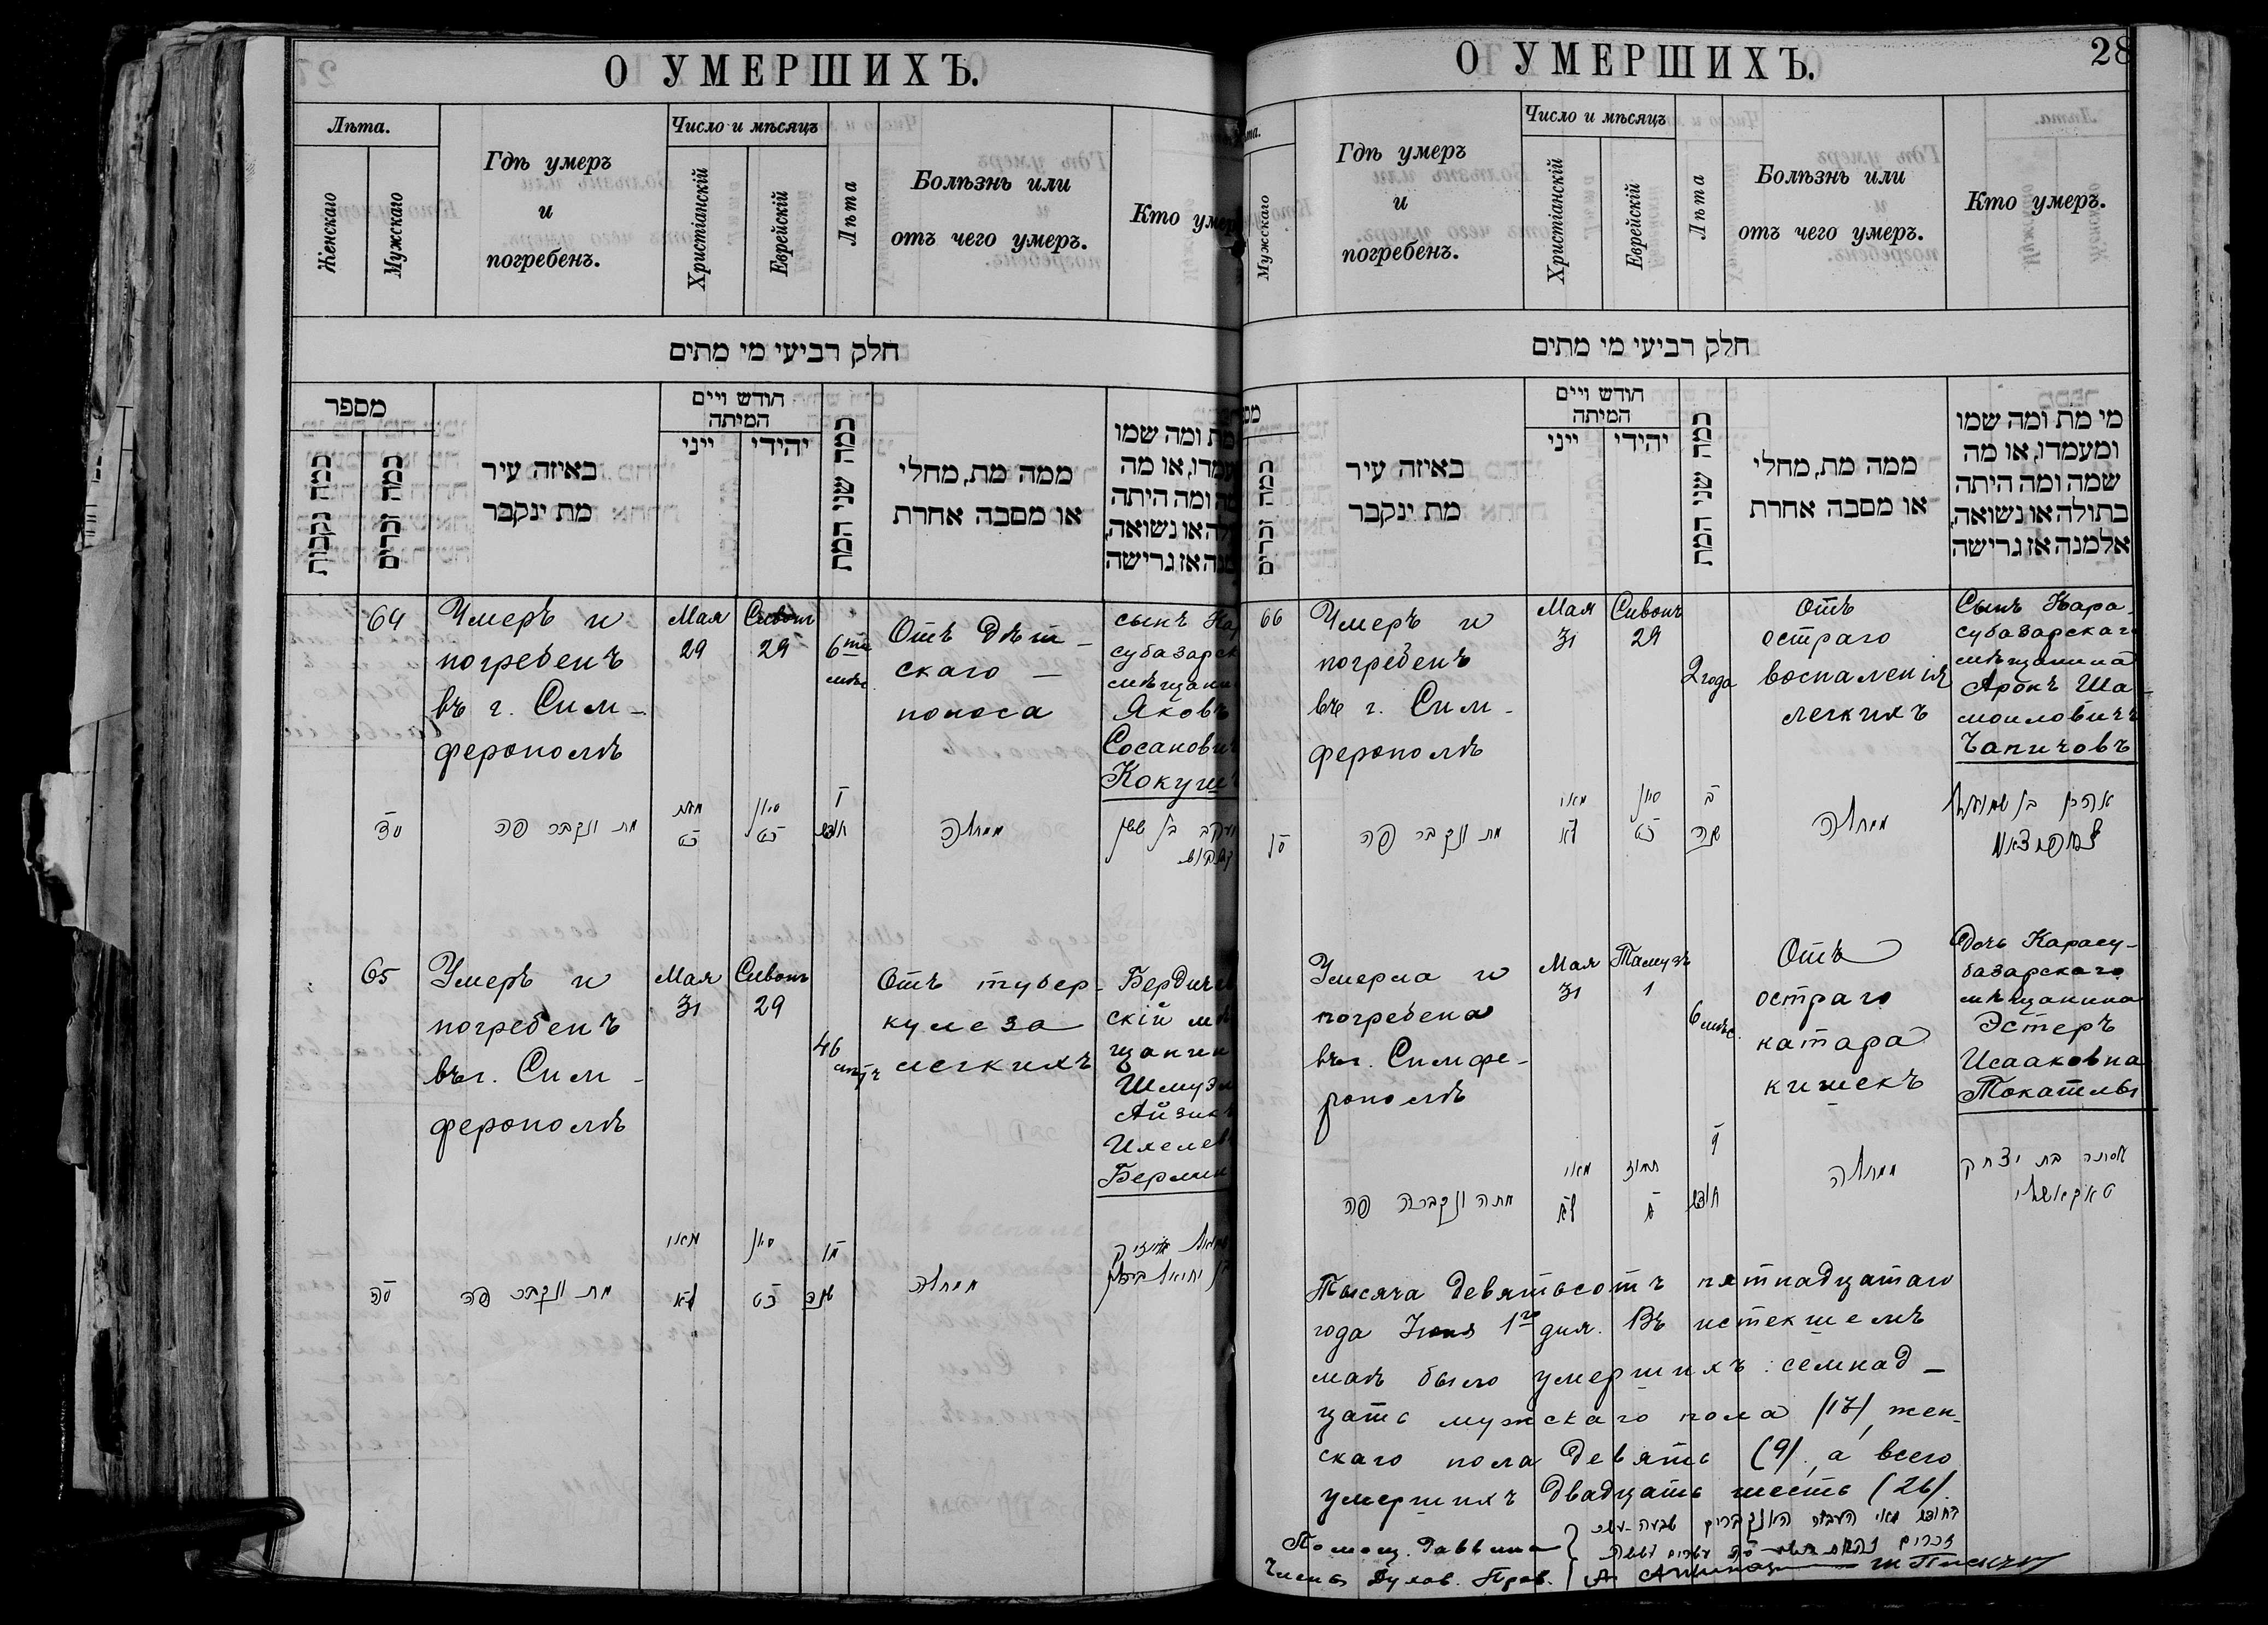 О УМЕРШИХЪ.
Лѣта.
Женскаго
Мужскаго
Гдѣ умеръ
и
погребенъ.
Число и мѣсяцъ
Христіанскій
Еврейскій
Лѣта
Болѣзнь или
отъ чего умеръ.
Кто умер
חלק רביעי מי מתים
מספר
כמה נקבות
כמה זכרים
באיזה עיר
מת ינקבר
חודש ויים
המיתה
ייני
יהידי
כמה שני המת
ממה מת, מחלי
או מסבה אחרת
מת ומה שמו
עמדו, או מה
מה ומה היתה
לה או נשואה,
מנה אז גרישה
64
Умеръ и
погребенъ
въ г. Сим-
ферополѣ
Мая
29
Сивонъ
29
6ти
мѣс.
Отъ дѣт-
скаго
поноса
сынъ Кар
субазарск
мѣщани
Яковъ
Сосанович
Кокушъ
סד
מת ונקבר פה
כט
סיון
כט
ו
חודש
מחלה
יעקב בן ששון
65
Умеръ и
погребенъ
въ г. Сим-
ферополѣ
Мая
31
Сивонъ
29
46
лѣтъ
Отъ тубер-
кулеза
легкихъ
Бердичев
скій мѣ
щанин
Шмуэл
Айзикъ
Ихелев
Берлин
סה
מת ונקבר פה
מאי
לא
סיון
כט
מו
שנה
מחלה
О УМЕРШИХЪ.
28
та.
Мужскаго
Гдѣ умеръ
и
погребенъ.
Число и мѣсяцъ
Христіанскій
Еврейскій
Лѣта
Болѣзнь или
отъ чего умеръ.
Кто умеръ.
חלק רביעי מי מתים
מס
כמה זכרים
באיזה עיר
מת ינקבר
חודש ויים
המיתה
ייני
יהידי
כמה שני המת
ממה מת, מחלי
או מסבה אחרת
מי מת ומה שמו
ומעמדו, או מה
שמה ומה היתה
בתולה או נשואה,
אלמנה אז גרישה
66
Умеръ и
погребенъ
въ г. Сим-
ферополѣ
Мая
31
Сивонъ
29
2 года
Отъ
остраго
воспаленія
легкихъ
Сынъ Кара-
субазарскаго
мѣщанина
Аронъ Ша-
моиловичъ
Чапичовъ
סו
מת ונקבר פה
מאי
לא
סיון
כט
ב
שנה
מחלה
אהרן בן שמואל
Умерла и
погребена
въ г. Симфе-
рополѣ
Мая
31
Тамузъ
1
6 мѣс.
Отъ
остраго
катара
кишекъ
Дочь Карасу-
базарскаго
мѣщанина
Эстеръ
Исааковна
Токатлы
מתה ונקברה פה
מאי
לא
תמוז
א
ו
חודש
מחלה
אסתר בת יצחק
טאקאטלי
Тысяча девятьсотъ пятнадцатаго
года Іюня 1го дня. Въ истекшемъ
маѣ было умершихъ: семнад-
цать мужскаго пола /17/, жен-
скаго пола девять (9), а всего
умершихъ двадцать шесть (26).
Помощ. Раввина
Члены Духов. Прав.